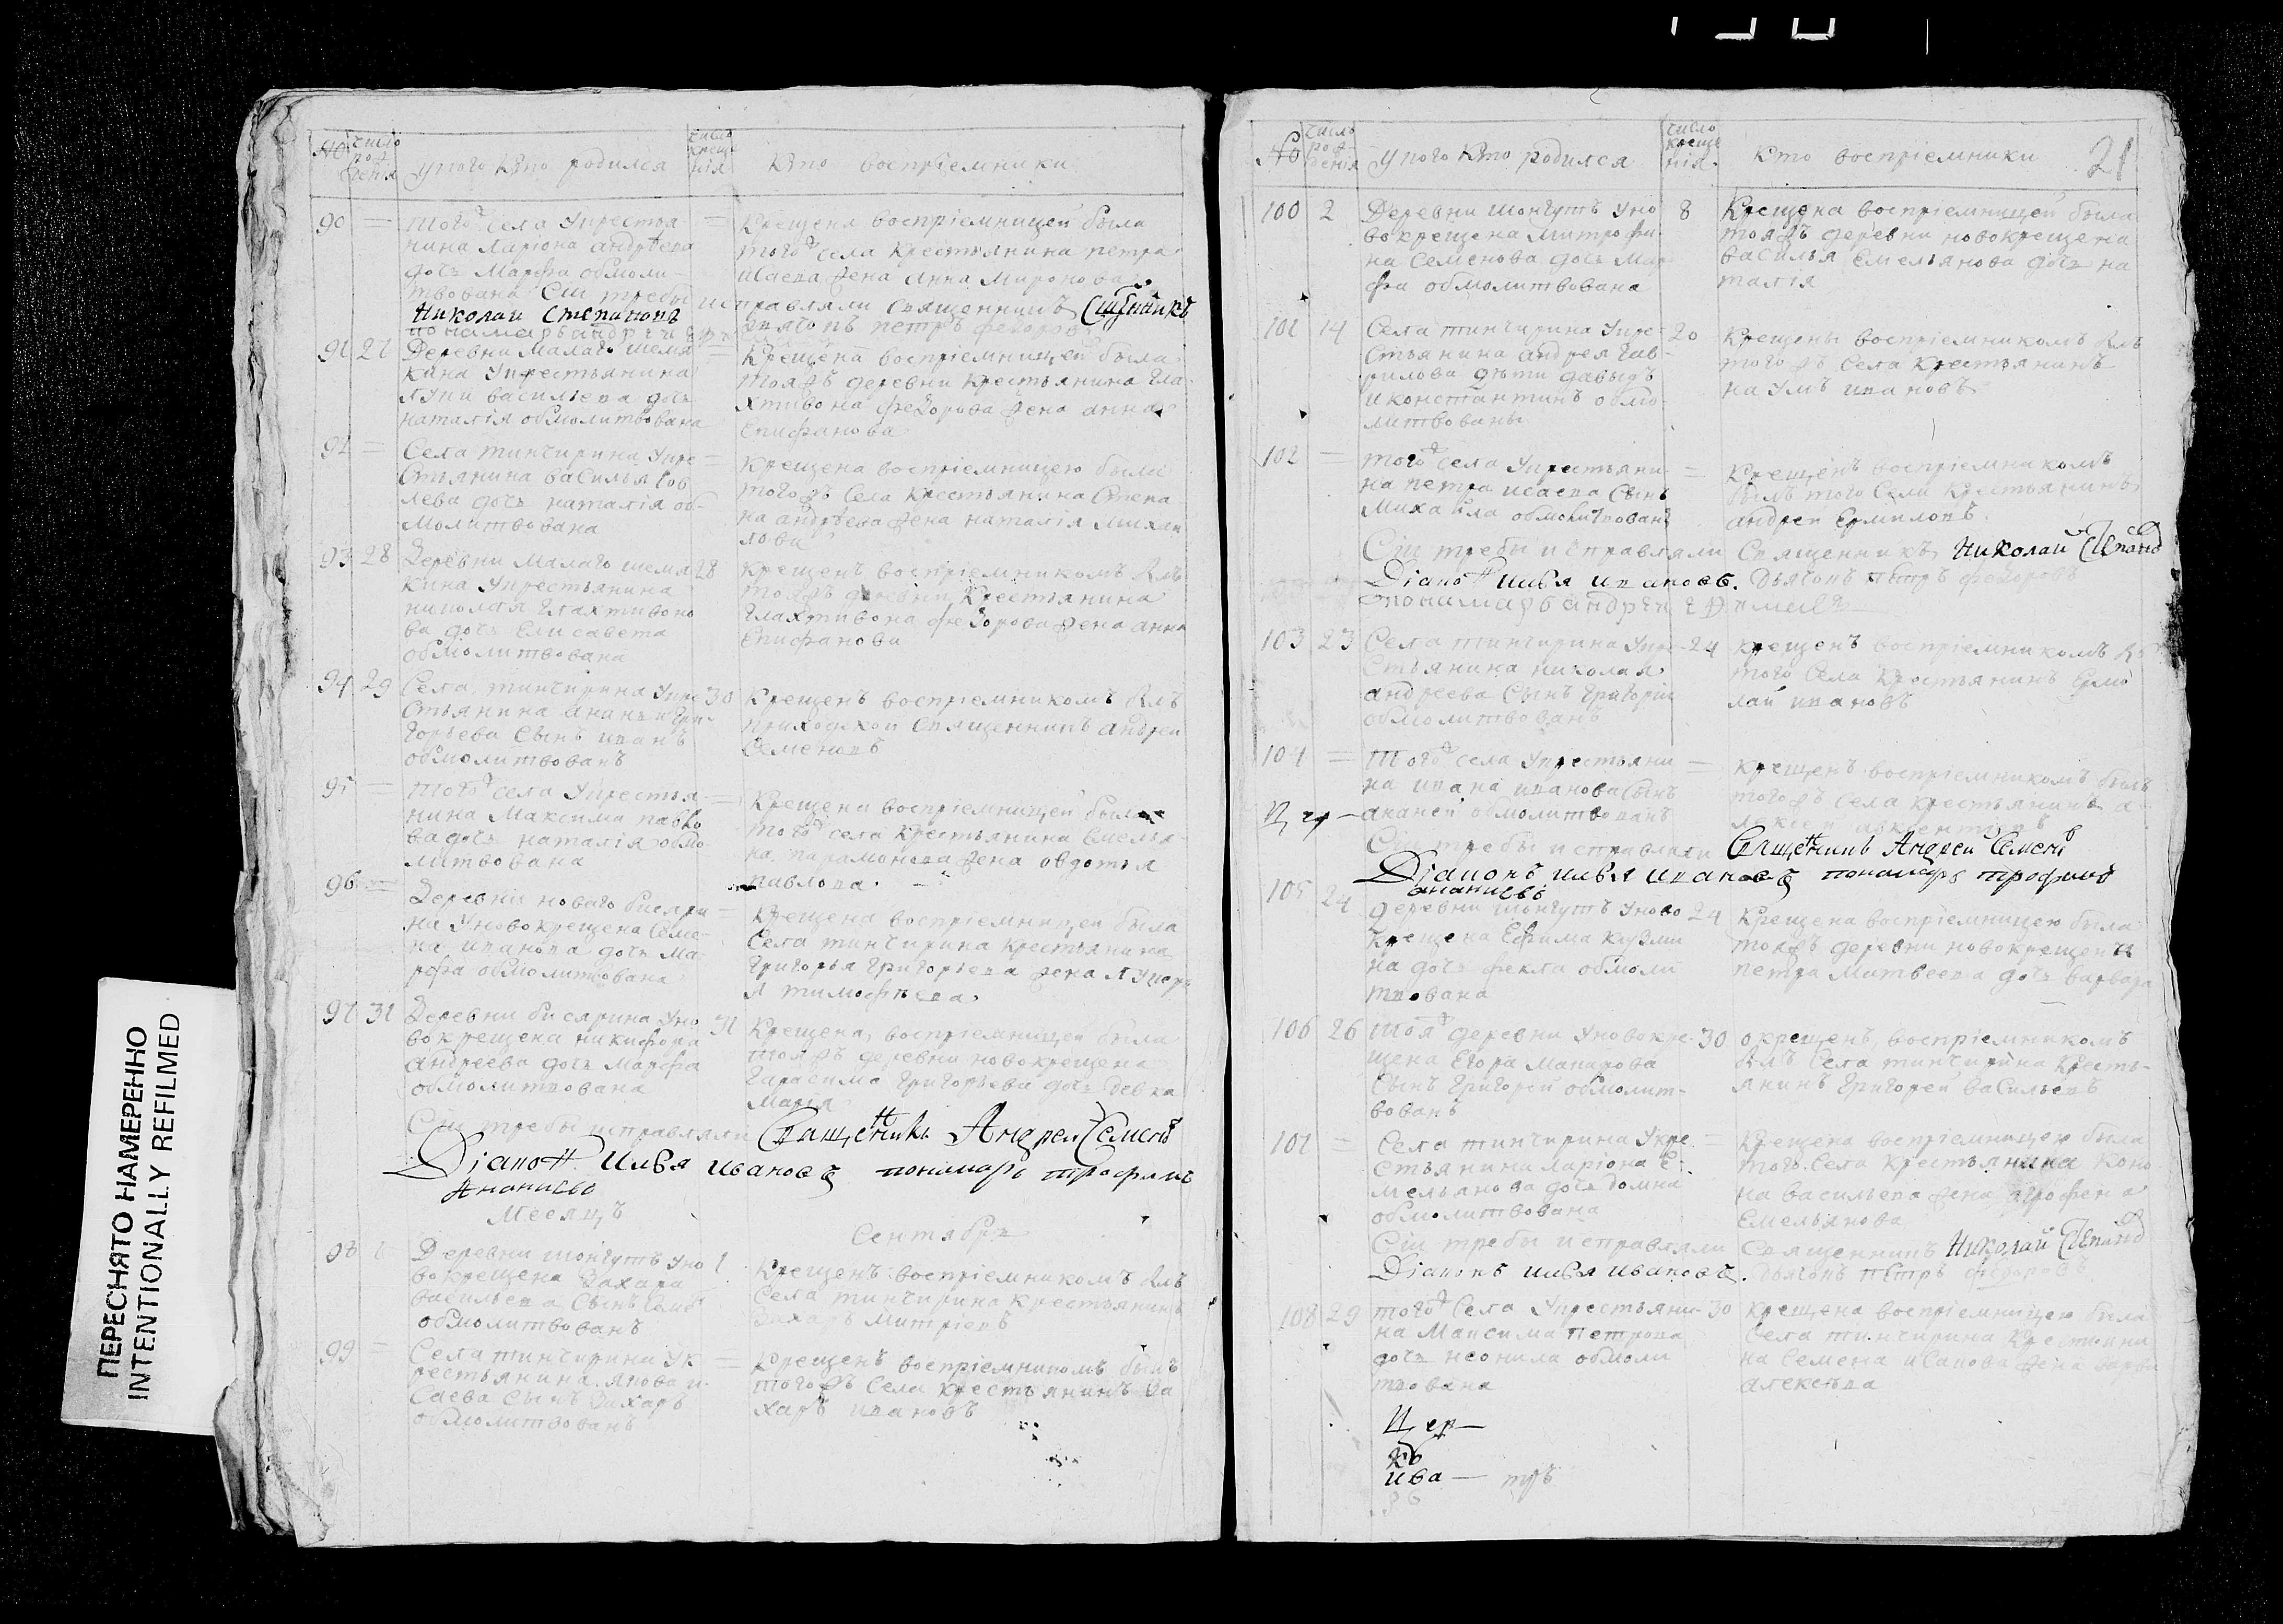 ПЕРЕСНЯТО НАМЕРЕННО
INTENTIONALLY REFILMED
№
число рождения
у кого кто родился
число крещения
кто воспрiемники
90 = того ж села у крестья
нина Ларiона андрѣева
дочь Марфа обмоли
твована
= Крещена воспрiемницей была
того ж села крестьянина петра
исаева жена анна миронова
Сiи требы исправляли Священникъ
Николай Степановъ
дьяконъ петръ федоровъ
91 27 Деревни Малаго шемя
кина у крестьянина
луки василiева дочь
наталiя обмолитвована
= Крещена воспрiемницей была
тояжъ деревни крестьянина гла
хтивона федорова жена анна
Епифанова
92 = Села тинчирина у кре
стьянина василья
лева дочь наталiя об
молитвована
= крещена воспрiемницею была
тогожъ села крестьянина Степа
на андрѣева жена наталiя михаи
лова
93 28 Деревни малаго шемя
кина у крестьянина
николая глахтивоно
ва дочь Елисавета
обмолитвована
28 крещенъ воспрiемникомъ блъ
тояжъ деревни крестьянина
глахтивона федорова жена анна
Епифанова
94 29 Села тинчирина у кре
стьянина ананьи Гри
горьева сынъ иванъ
обмолитвованъ
30 Крещенъ воспрiемникомъ блъ
приходской священникъ андрей
Семеновъ
95 = того ж села у крестья
нина Максима павло
ва дочь наталiя обмо
литвована
= Крещена воспрiемницей была
того ж села крестьянина Емелья
на парамонова жена овдотья
павлова
96 = Деревни новаго бисяри
на у новокрещена Семе
на иванова дочь Ма
рфа обмолитвована
= Крещена воспрiемницей была
Села тинчирина крестьянина
григорья григорьева жена лукерь
я тимофѣева
97 31 Деревни бисярина у но
вокрещена никифора
андреева дочь марфа
обмолитвована
31 Крещена, воспрiемницей была
тояжъ деревни новокрещена
гарасима григорьева дочь девка
марiя
Сiи требы исправляли Священникъ Андрей Семеновъ
Дiаконъ Илья Ивановъ пономарь трофимъ
Ананьевъ
Месяцъ Сентябрь
98 1 Деревни шонгутъ у но
вокрещена Захара
васильева сынъ
обмолитвованъ
1 Крещенъ воспрiемникомъ блъ
Села тинчирина крестьянинъ
Захаръ митрiевъ
99 = Села тинчирина у к
рестьянина якова и
саева сынъ Захаръ
обмолитвованъ
= Крещенъ воспрiемникомъ былъ
тогожъ села крестьянинъ За
харъ ивановъ
№
число рождения
у кого кто родился
число крещения
кто воспрiемники
21
100 2 Деревни шонгутъ у но
вокрещена митрофа
на семенова дочь мар
фа обмолитвована
8 Крещена воспрiемницей была
тояжъ деревни новокрещена
василья Емельянова дочь на
талiя
101 14 Села тинчирина у кре
стьянина андрея гав
рилова дѣти давыдъ
и константинъ обмо
литвованы
20 Крещены воспрiемникомъ блъ
тогожъ села крестьянинъ
наумъ ивановъ
102 = того ж села у крестьяни
на петра исаева сынъ
михаила обмолитвованъ
= Крещенъ воспрiемникомъ
былъ того села крестьянинъ
андрей Ермиловъ
Сiи требы исправляли Священникъ Николай Степановъ
Дiаконъ илья ивановъ. дьяконъ петръ федоровъ
пономарь андрей
103 23 Села тинчирина у кре
стьянина николая
андреева сынъ григорiй
обмолитвованъ
24 крещенъ воспрiемникомъ блъ
того села крестьянинъ Ермо
лай ивановъ
104 = того ж села у крестьяни
на ивана иванова сынъ
ананей обмолитвованъ
= крещенъ воспрiемникомъ былъ
тогожъ села крестьянинъ а
Сiи требы исправляли Священникъ Андрей Семеновъ
Дiаконъ илья ивановъ пономарь трофимъ
ананьевъ
105 24 деревни шонгутъ у ново
крещена Ефима кузми
на дочь фекла обмоли
твована
24 Крещена воспрiемницею была
тояжъ деревни новокрещена
петра матвеева дочь варвара
106 26 тоя ж деревни у новокре
щена Егора макарова
сынъ григорей обмолит
вованъ
30 окрещенъ, воспрiемникомъ
блъ села тинчирина кресть
янинъ григорей васильевъ
107 = Села тинчирина у кре
стьянина ларiона Е
мельянова дочь домна
обмолитвована
= Крещена воспрiемницею была
того села крестьянина коно
на васильева жена
Емельянова
Сiи требы исправляли Священникъ Николай Степановъ
Дiаконъ илья ивановъ. дьяконъ петръ федоровъ
108 29 того ж села у крестьяни
на Максима петрова
дочь неонила обмоли
твована
30 крещена воспрiемницею была
села тинчирина крестьяни
на семена жена варва
алексѣва
Цер
къ
ива